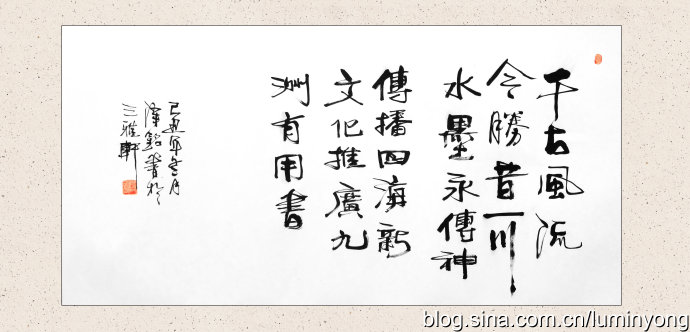 千古風流
今勝昔一川
水墨永傳神
傳播四海新
文化推廣九
洲有用書
己丑年冬月
澤銘書於
三雅軒
blog.sina.com.cn/luminyong